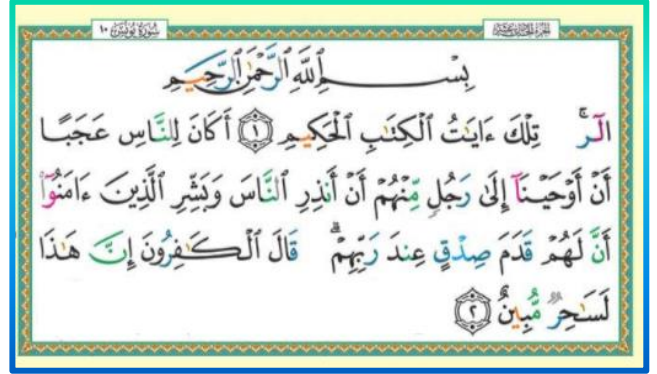 سُورَةُ يُونُسَ ١٠
بِسْمِ اللَّهِ الرَّحْمَٰنِ الرَّحِيمِ
الٓر ۚ تِلْكَ ءَايَٰتُ الْكِتَٰبِ الْحَكِيمِ ١ أَكَانَ لِلنَّاسِ عَجَبًا
أَنْ أَوْحَيْنَآ إِلَىٰ رَجُلٍ مِّنْهُمْ أَنْ أَنذِرِ النَّاسَ وَبَشِّرِ الَّذِينَ ءَامَنُوٓا۟
أَنَّ لَهُمْ قَدَمَ صِدْقٍ عِندَ رَبِّهِمْ ۗ قَالَ الْكَٰفِرُونَ إِنَّ هَٰذَا
لَسَٰحِرٌ مُّبِينٌ ٢